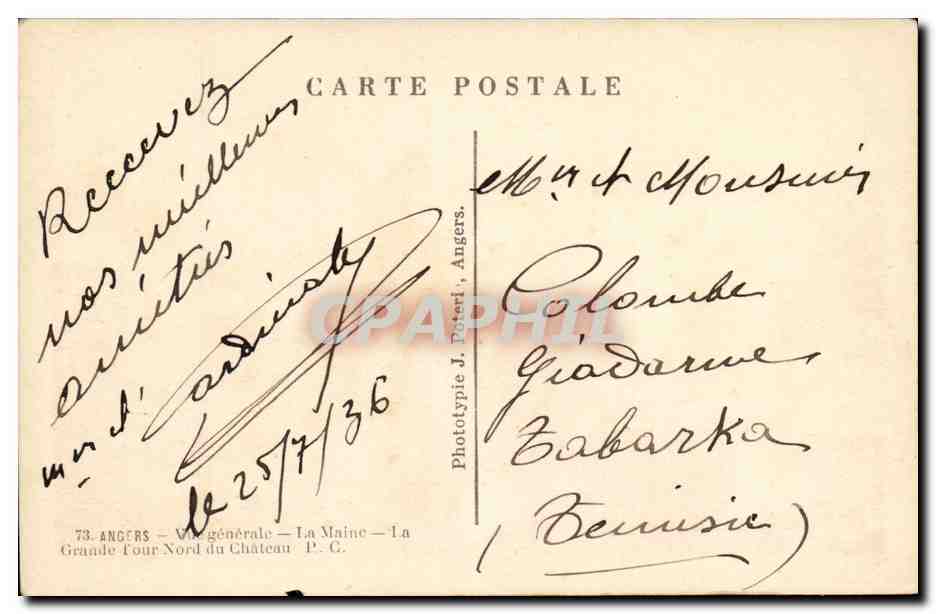 CARTE POSTALE
Recevez
nos meilleures
amitiés
le 25/7/36
Phototypie J. Poteri, Angers.
Colombe
Tabarka
(Tunisie)
73. ANGERS – Vue générale – La Maine – La
Grande Tour Nord du Château P. C.
CPAPHIL